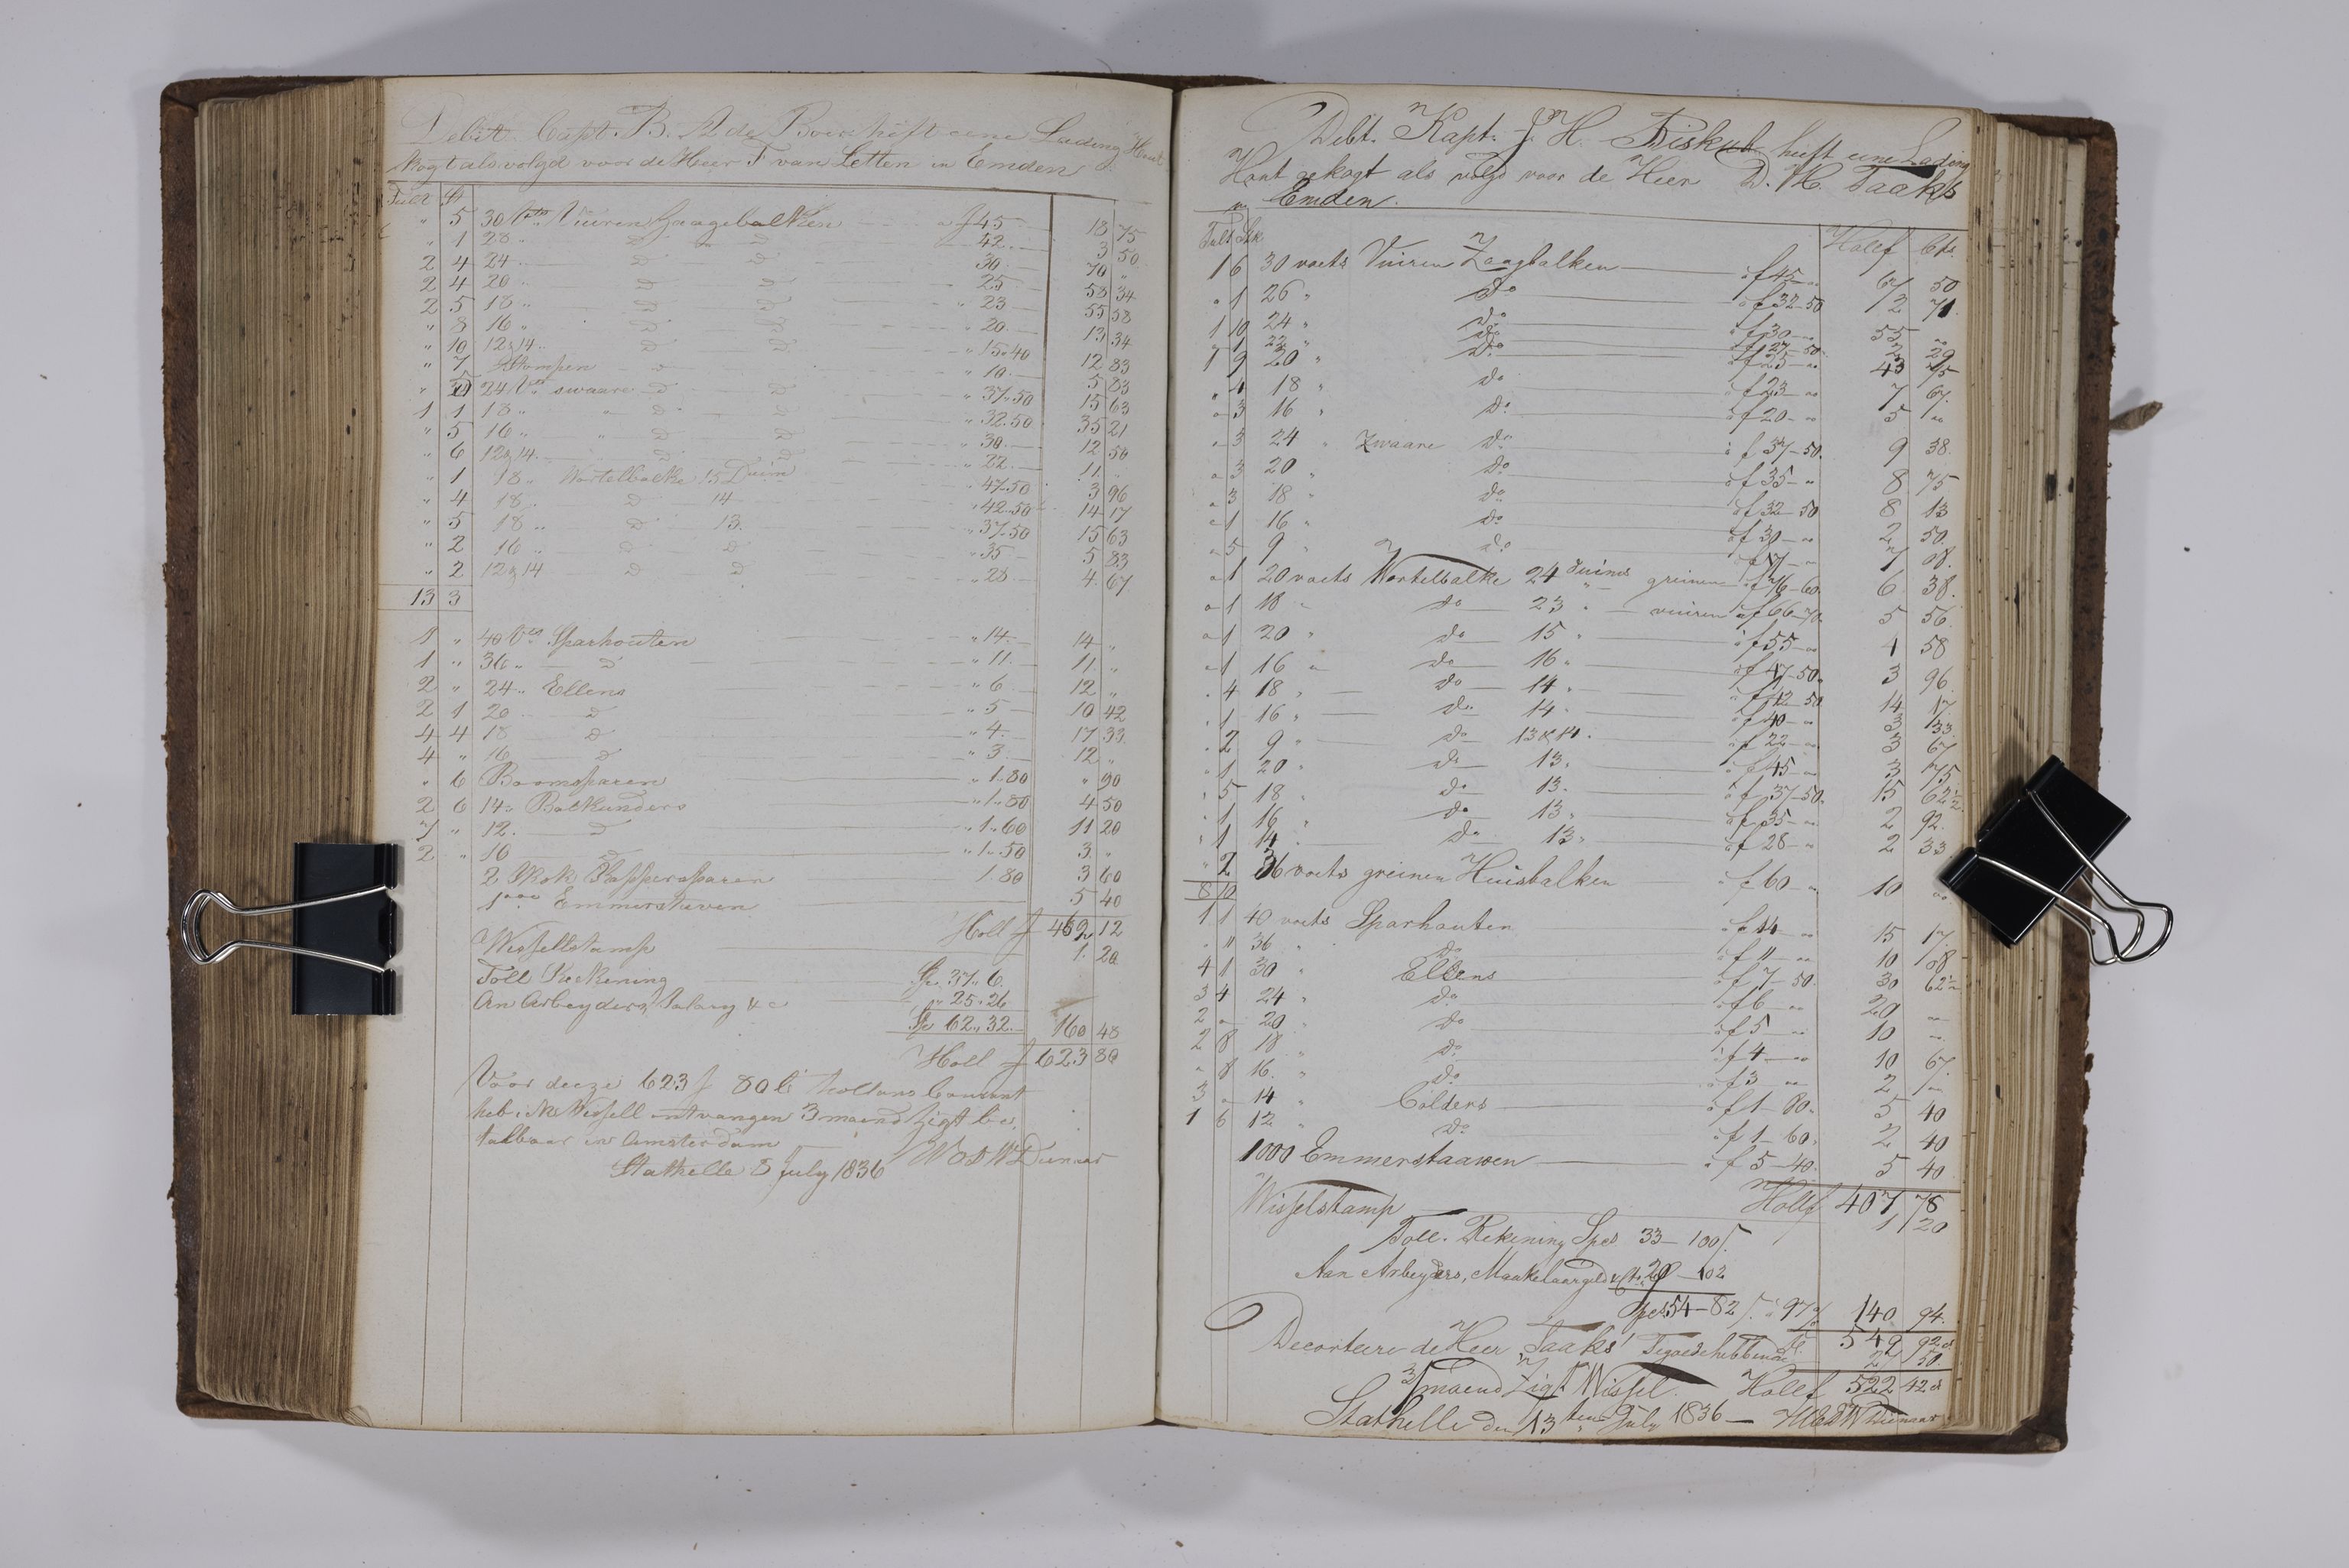 Debit Capt. B. A de Boer hift eene Lading Hout
kogt als volgd voor de Heer F van Letten in Emden
Tult St
" 5 30 Vts Vuiren Zaagebalken f 45 18 75
" 1 28 " D D 42 3 50
2 4 24 " D D 30 70 "
2 4 20 " D D 25 58 34
2 5 18 " D D " 23 55 58
" 8 16 " D D " 20 13 34
" 10 12 & 14 " D D " 15-40 12 83
" 7 Stompen D " 10 5 83
" 5 24 Vts swaare D D " 37-50 15 63
1 1 18 " " D D " 32-50 35 21
" 5 16 " " D D " 30 12 50
" 6 12 & 14 D D " 22 11 "
" 1 18 " Wortelbalke 15 Duim 47-50 3 96
" 4 18 " D 14 " 42-50 14 17
" 5 18 " D 13 " 37-50 15 63
" 2 16 " D D " 35 5 83
" 2 12 & 14 D D " 28 4 67
13 3
1 " 40 Vts Sparhouten " 14 14 "
1 " 36 " D " 11 11 "
2 " 24 " Ellens " 6 12 "
2 1 20 D " 5 10 42
4 4 18 D " 4 17 33
4 " 16 D " 3 12 "
" 6 Boomsparen " 1-80 " 90
2 6 14 " Bolkunders " 1-80 4 50
7 " 12 D " 1-60 11 20
2 " 10 D " 1-50 3 "
2 Skok Kappersparen 1 80 3 60
1000 Emmersteven 5 40
Holl f 462 12
Wissellstamp 1 20
Toll Reekening Sp 37 " 6
An Arbeyders, Salary & c " 25 " 26
Sp 62 " 32 160 48
Holl f 623 80
Voor deeze 623 f 80 C hollans Courant
heb ik Wissell ontvangen 3 maend zigt be
talbaar in Amsterdam
Stathelle 5 July 1836
Debt. Kapt. J. H. Biskub hieft eine Lading
Hout gekogt als volgd voor de Heer D. H. Taaks
in Emden.
Tult Stk Hollf Cts
1 6 30 voets Vuiren Zaagbalken à f 45 67 50
" 1 26 " Do à f 32-50 2 71
1 10 24 " Do à f 30 55 "
" 1 22 " Do à f 27-50 2 29
1 9 20 " Do à f 25 43 75
" 4 18 " Do à f 23 7 67
" 3 16 " Do à f 20 5 "
" 3 24 " Zwaare Do à f 37-50 9 38
" 3 20 Do à f 35 8 75
" 3 18 " Do à f 32-50 8 13
" 1 16 " Do à f 30 2 50
" 5 9 " Do à f 17 7 08
" 1 20 voets Wortelbalke 24 duims greinen à f 76-60 6 38
" 1 18 " do 23 " vuiren à f 66-70 5 56
" 1 20 " do 15 " à f 55 4 58
" 1 16 " do 16 " à f 47-50 3 96
" 4 18 " do 14 " à f 42-50 14 17
" 1 16 " do 14 " à f 40 3 33
" 2 9 " do 13 & 14 à f 22 3 67
" 1 20 " do 13 " à f 45 3 75
" 5 18 " do 13 à f 37-50 15 62½
" 1 16 " do 13 " à f 35 2 92
" 1 14 do 13 " à f 28 2 33
" 2 36 voets greinen Huisbalken à f 60 10 "
8 10
1 1 40 voets Sparhouten à f 14 15 17
" 11 36 " do à f 11 10 08
4 1 30 " Ellens à f 7-50 30 62½
3 4 24 " do à f 6 20 "
2 " 20 do à f 5 10 "
2 8 18 " do à f 4 10 67
" 8 16 " do à f 3 2 "
3 " 14 " Colders à f 1-80 5 40
1 6 12 " do à f 1-60 2 40
1000 Emmerstaawen à f 5-40 5 40
Hollf 407 78
Wisselstamp 1 20
Toll. Rekening Spes 33-100
Aan Arbeyders, Maakelaargeld 20-102
Spes 54-82 à 97 140 94
549 92
Decorteere de Heer Taaks' Tegoedehebbende 27 50
3/maend Zigt Wissel. Hollf 522 42
Stathelle den 13ten July 1836